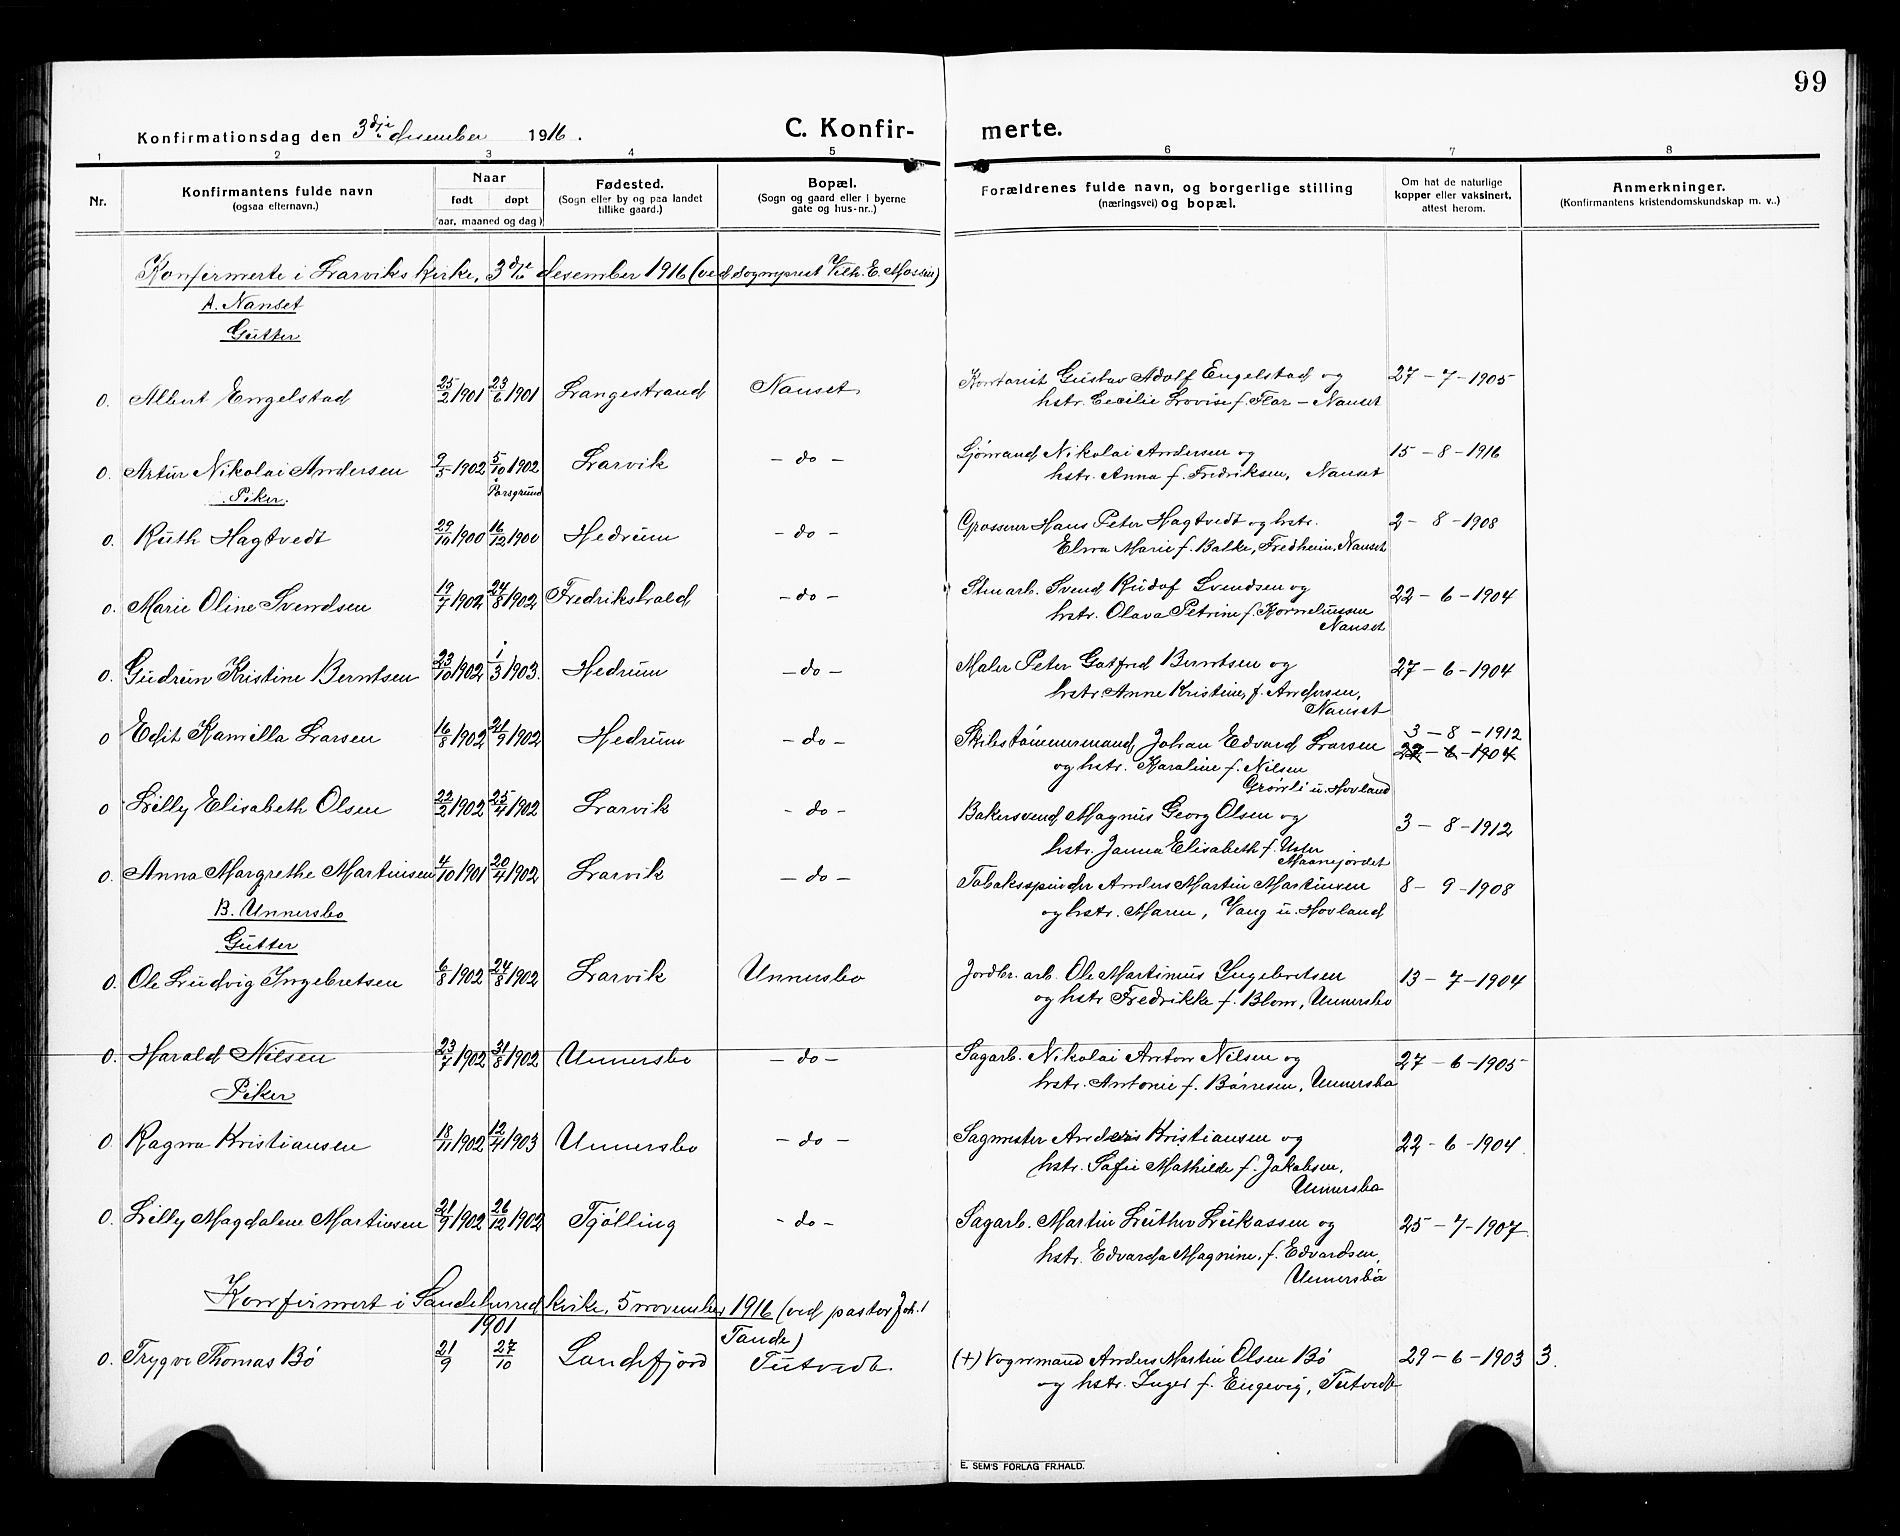 99
Konfirmationsdag den 3dje desember 1916.
C. Konfirmerte.
1 2 3 4 5 6 7 8
Nr.
Konfirmantens fulde navn
(ogsaa efternavn.)
Naar
født døpt
(aar, maaned og dag)
Fødested.
(Sogn eller by og paa landet
tillike gaard.)
Bopæl.
(Sogn og gaard eller i byerne
gate og hus-nr.)
Forældrenes fulde navn, og borgerlige stilling
(næringsvei) og bopæl.
Om hat de naturlige
kopper eller vaksinert,
attest herom.
Anmerkninger.
(Konfirmantens kristendomskundskap m. v..)
Konfirmerte i Larviks kirke, 3dje desember 1916 (ved sogneprest Vilh. E. Mossin)
A. Nanset
Gutter
0. Albert Engelstad 25/2 1901 23/6 1901 Langestrand Nanset Kontorist Gustav Adolf Engelstad og 27-7-1905
hstr. Cecilie Lovise f. Flor - Nanset
0. Artur Nikolai Andersen 9/5 1902 5/10 1902 Larvik - do - Sjømand Nikolai Andersen og 15-8-1916
i Porsgrund
hstr. Anna f. Fredriksen, Nanset
Piker.
0. Ruth Hagtvedt 29/10 1900 16/12 1900 Hedrum - do - Grosserer Hans Peter Hagtvedt og hstr. 2-8-1908
Elna Marie f. Balke, Fredheim, Nanset
0. Marie Oline Svendsen 19/7 1902 24/8 1902 Fredrikshald - do - Stenarb. Svend Rudof Svendsen og 22-6-1904
hstr. Olava Petrine f. Korneliussen
Nanset
0. Gudrun Kristine Berntsen 23/10 1902 1/3 1903. Hedrum - do - Maler Peter Gotfred Berntsen og 27-6-1904
hstr. Anne Kristine, f. Andersen,
Nanset
0 Edit Kamilla Larsen 16/8 1902 21/9 1902 Hedrum - do - Skibstømmermand Johan Edvard Larsen 3-8-1912
22-6-1904
og hstr. Karoline f. Nilsen
Grønli u. Hovland
0 Lilly Elisabeth Olsen 22/2 1902 25/4 1902 Larvik - do - Bakersvend Magnus Georg Olsen og 3-8-1912
hstr. Janna Elisabeth f. Uster
Maanejordet
0. Anna Margrethe Martinsen 4/10 1901 20/4 1902 Larvik - do - Tobaksspinder Anders Martin Martinsen 8-9-1908
og hstr. Maren, Vang u. Hovland
B. Unnersbo
Gutter
0. Ole Ludvig Ingebretsen 6/8 1902 24/8 1902 Larvik Unnersbo Jordbr. arb. Ole Martinius Ingebretsen 13-7-1904
og hstr. Fredrikke f. Blom, Unnersbo
0. Harald Nilsen 23/7 1902 31/8 1902 Unnersbo - do - Sagarb. Nikolai Anton Nilsen og 27-6-1905
hstr. Antonie f. Børresen, Unnersbo
Piker
0 Ragna Kristiansen 18/11 1902 12/4 1903 Unnersbo - do - Sagmester Anders Kristiansen og 22-6-1904.
hstr. Sofie Mathilde f. Jakobsen,
Unnersbo
0. Lilly Magdalene Martinsen 21/9 1902 26/12 1902 Tjølling - do - Sagarb. Martin Luther Lukassen og 25-7-1907.
hstr. Edvarda Magnine, f. Edvardsen,
Unnersbo
Konfirmert i Sandeherred kirke, 5 november 1916 (ved pastor Joh.
Tande)
1901
0. Trygve Thomas Bø 21/9 27/10 Sandefjord Tutvedt. (+) Vognmand Anders Martin Olsen Bø 29-6-1903 3.
og hstr. Inger f. Engevig, Tutvedt
E. SEM'S FORLAG FR.HALD.